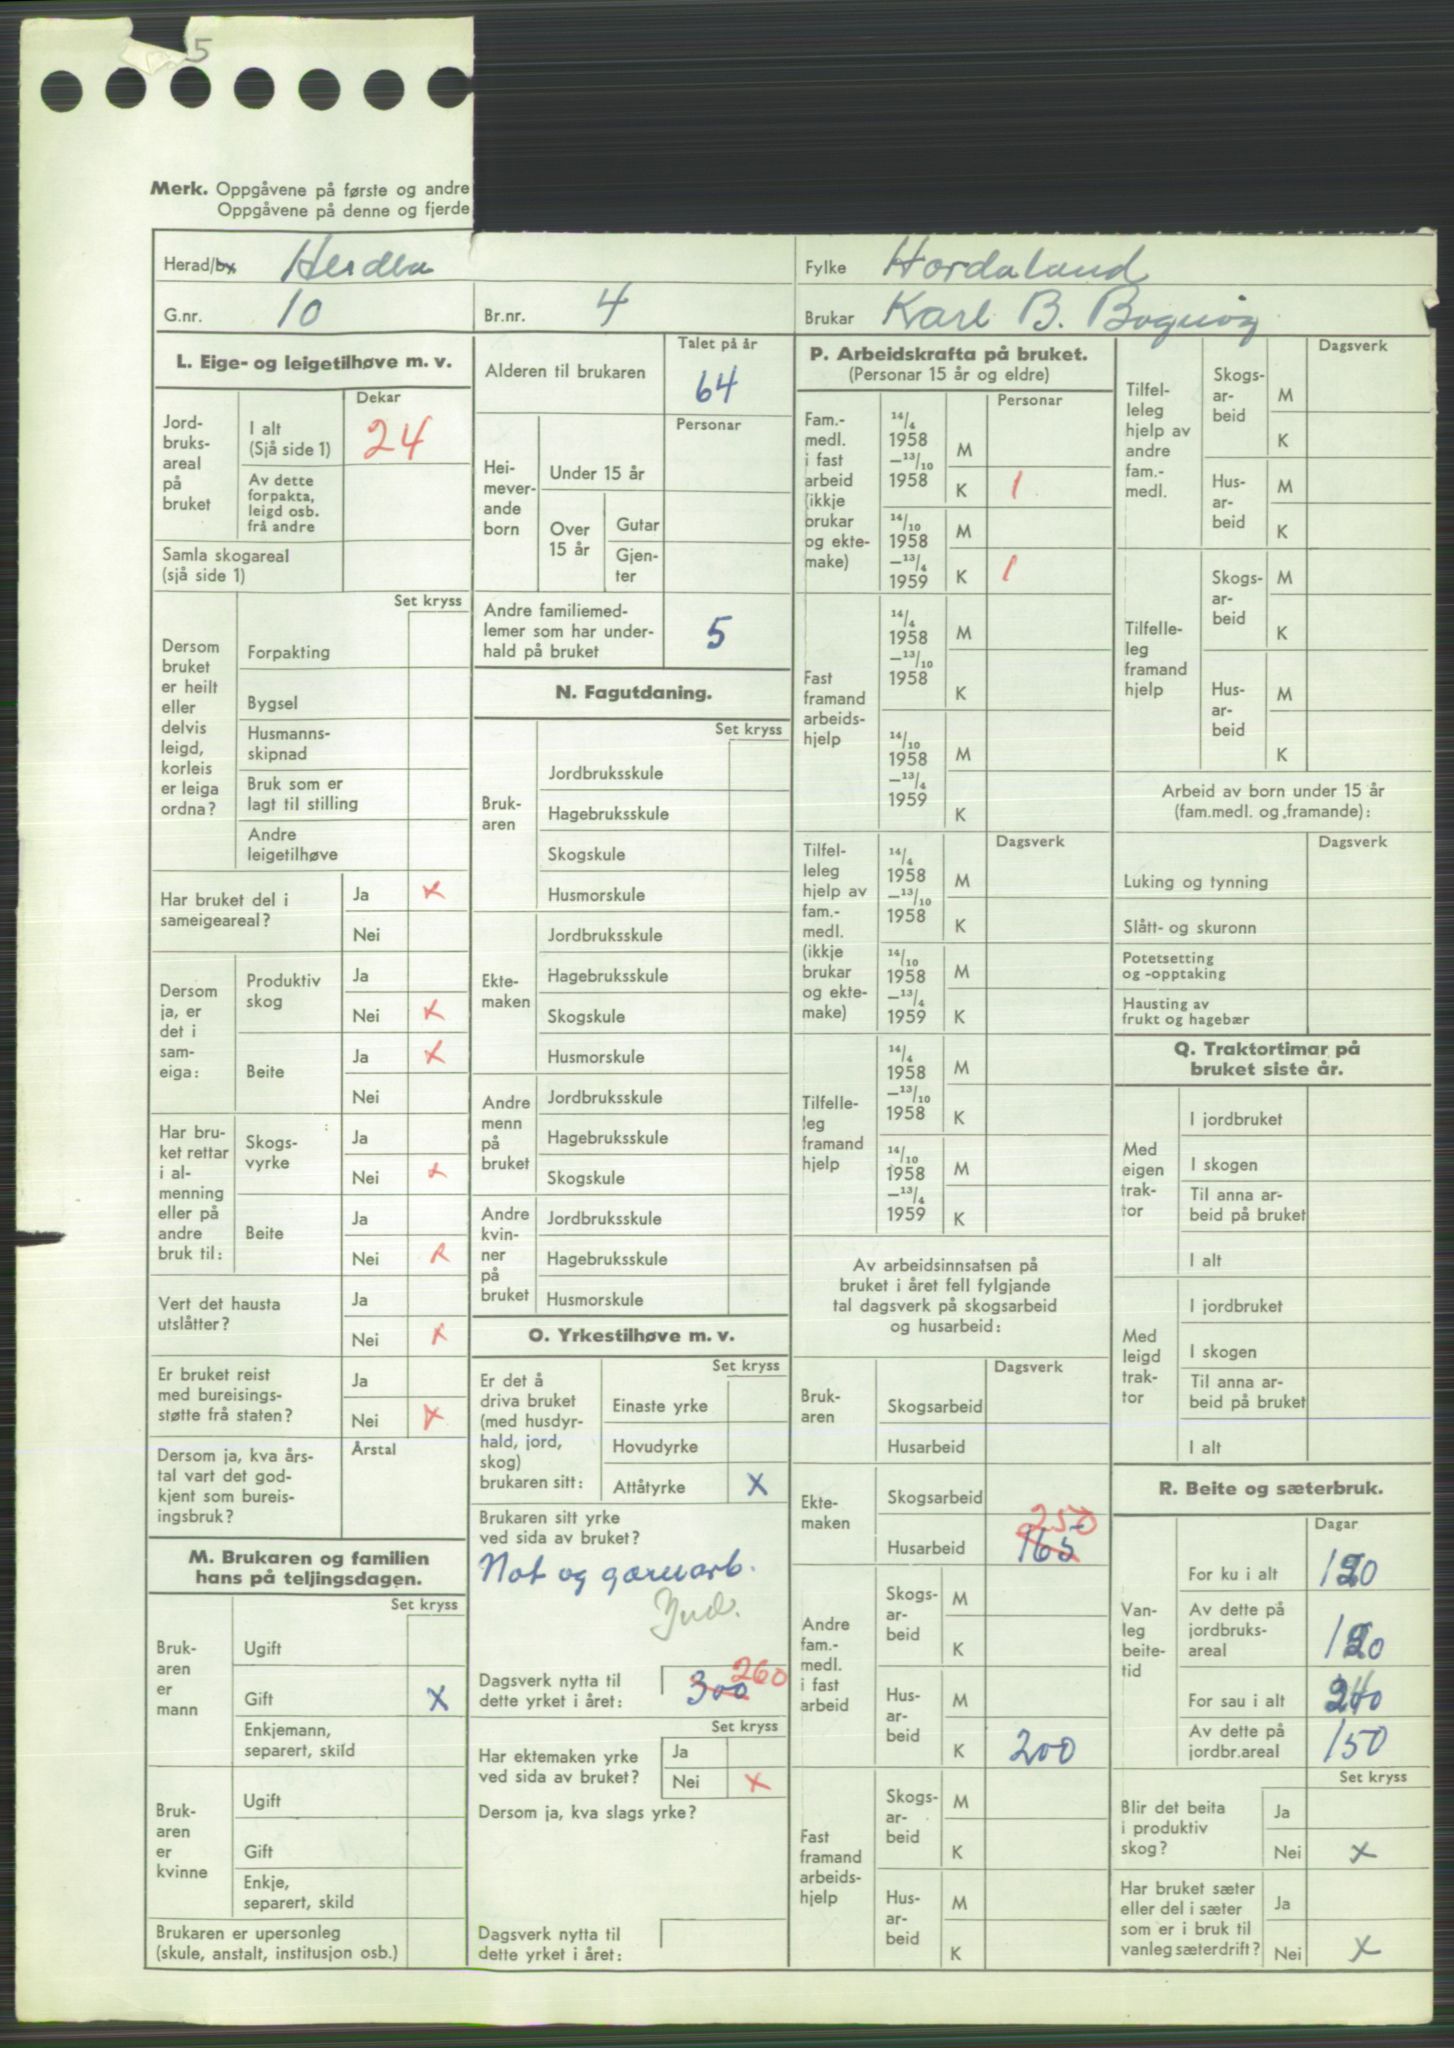 5
Merk. Oppgåvene på første og andre
Oppgåvene på denne og fjerde
Herad/by Herdla
Fylke Hordaland
G.nr. 10
Br.nr. 4
Brukar Karl B. Bognøy
L. Eige- og leigetilhøve m. v.
Dekar
Jord-
bruks-
areal
på
bruket
I alt
(Sjå side 1)
24
Av dette
forpakta,
leigd osb.
frå andre
Samla skogareal
(sjå side 1)
Set kryss
Dersom
bruket
er heilt
eller
delvis
leigd,
korleis
er leiga
ordna?
Forpakting
Bygsel
Husmanns-
skipnad
Bruk som er
lagt til stilling
Andre
leigetilhøve
Har bruket del i
sameigeareal?
Ja x
Nei
Dersom
ja, er
det i
sam-
eiga:
Produktiv
skog
Ja
Nei x
Beite
Ja x
Nei
Har bru-
ket rettar
i al-
menning
eller på
andre
bruk til:
Skogs-
vyrke
Ja
Nei x
Beite
Ja
Nei x
Vert det hausta
utslåtter?
Ja
Nei x
Er bruket reist
med bureisings-
støtte frå staten?
Ja
Nei x
Dersom ja, kva års-
tal vart det god-
kjent som bureis-
ingsbruk?
Årstal
M. Brukaren og familien
hans på teljingsdagen.
Set kryss
Bruk-
aren
er
mann
Ugift
Gift x
Enkjemann,
separert, skild
Bruk-
aren
er
kvinne
Ugift
Gift
Enkje,
separert, skild
Brukaren er upersonleg
(skule, anstalt, institusjon osb.)
Talet på år
Alderen til brukaren 64
Personar
Hei-
mever-
ande
born
Under 15 år
Over
15 år
Gutar
Gjen-
ter
Andre familiemed-
lemer som har under-
hald på bruket
5
N. Fagutdaning.
Set kryss
Bruk-
aren
Jordbruksskule
Hagebruksskule
Skogskule
Husmorskule
Ekte-
maken
Jordbruksskule
Hagebruksskule
Skogskule
Husmorskule
Andre
menn
på
bruket
Jordbruksskule
Hagebruksskule
Skogskule
Andre
kvin-
ner
på
bruket
Jordbruksskule
Hagebruksskule
Husmorskule
O. Yrkestilhøve m. v.
Set kryss
Er det å
driva bruket
(med husdyr-
hald, jord,
skog)
brukaren sitt:
Einaste yrke
Hovudyrke
Attåtyrke x
Brukaren sitt yrke
ved sida av bruket?
Not og garnarb.
Ind.
Dagsverk nytta til
dette yrket i året:
300 260
Set kryss
Har ektemaken yrke
ved sida av bruket?
Ja
Nei x
Dersom ja, kva slags yrke?
Dagsverk nytta til
dette yrket i året:
P. Arbeidskrafta på bruket.
(Personar 15 år og eldre)
Personar
Fam.-
medl.
i fast
arbeid
(ikkje
brukar
og ekte-
make)
14/4
1958
—13/10
1958
M
K 1
14/10
1958
—13/4
1959
M
K 1
Fast
framand
arbeids-
hjelp
14/4
1958
—13/10
1958
M
K
14/10
1958
—13/4
1959
M
K
Dagsverk
Tilfel-
leleg
hjelp av
fam.-
medl.
(ikkje
brukar
og ekte-
make)
14/4
1958
—13/10
1958
M
K
14/10
1958
—13/4
1959
M
K
Tilfelle-
leg
framand
hjelp
14/4
1958
—13/10
1958
M
K
14/10
1958
—13/4
1959
M
K
Av arbeidsinnsatsen på
bruket i året fell fylgjande
tal dagsverk på skogsarbeid
og husarbeid:
Dagsverk
Bruk-
aren
Skogsarbeid
Husarbeid
Ekte-
maken
Skogsarbeid
Husarbeid 250
165
Andre
fam.-
medl.
i fast
arbeid
Skogs-
ar-
beid
M
K
Hus-
ar-
beid
M
K 200
Fast
framand
arbeids-
hjelp
Skogs-
ar-
beid
M
K
Hus-
ar-
beid
M
K
Dagsverk
Tilfel-
leleg
hjelp av
andre
fam.-
medl.
Skogs-
ar-
beid
M
K
Hus-
ar-
beid
M
K
Tilfelle-
leg
framand
hjelp
Skogs-
ar-
beid
M
K
Hus-
ar-
beid
M
K
Arbeid av born under 15 år
(fam.medl. og framande):
Dagsverk
Luking og tynning
Slått- og skuronn
Potetsetting
og -opptaking
Hausting av
frukt og hagebær
Q. Traktortimar på
bruket siste år.
Med
eigen
trak-
tor
I jordbruket
I skogen
Til anna ar-
beid på bruket
I alt
Med
leigd
trak-
tor
I jordbruket
I skogen
Til anna ar-
beid på bruket
I alt
R. Beite og sæterbruk.
Dagar
Van-
leg
beite-
tid
For ku i alt
Av dette på
jordbruks-
areal
For sau i alt
Av dette på
jordbr.areal
150
Set kryss
Blir det beita
i produktiv
skog?
Ja
Nei x
Har bruket sæter
eller del i sæter
som er i bruk til
vanleg sæterdrift?
Ja
Nei x